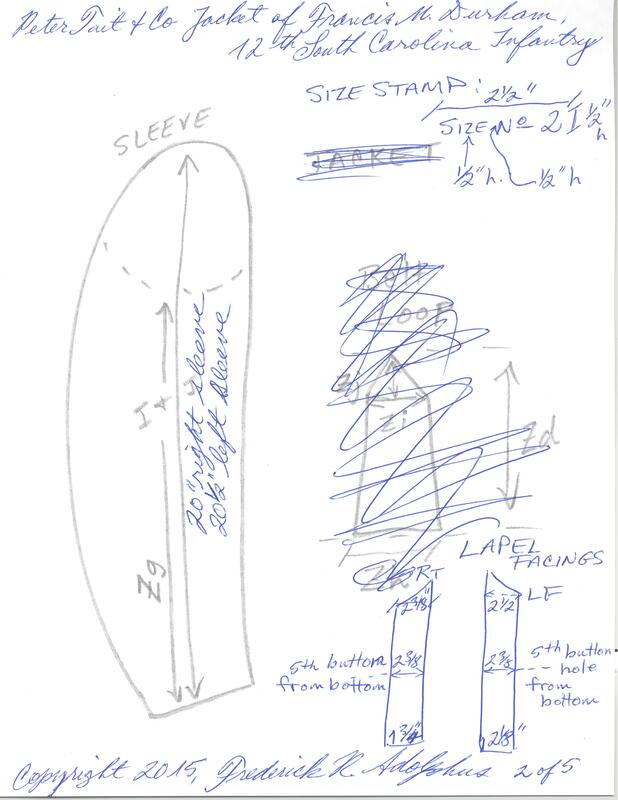 Peter Tait & Co Jacket of Francis M. Durham,
12th South Carolina Infantry
SIZE STAMP:
2½"
SIZE Nº 2 I ½"
h
½" h.
½" h
SLEEVE
JACKET
BELT
LOOP
Zj
Zi
Zd
I
Zg
20" right sleeve
20½" left sleeve
LAPEL
FACINGS
RT
2⅜"
2½"
LF
5th button
from bottom
2⅜
2⅜
5th button
hole
from
bottom
1¾"
2⅛"
Copyright 2015, Frederick R. Adolphus 2 of 5